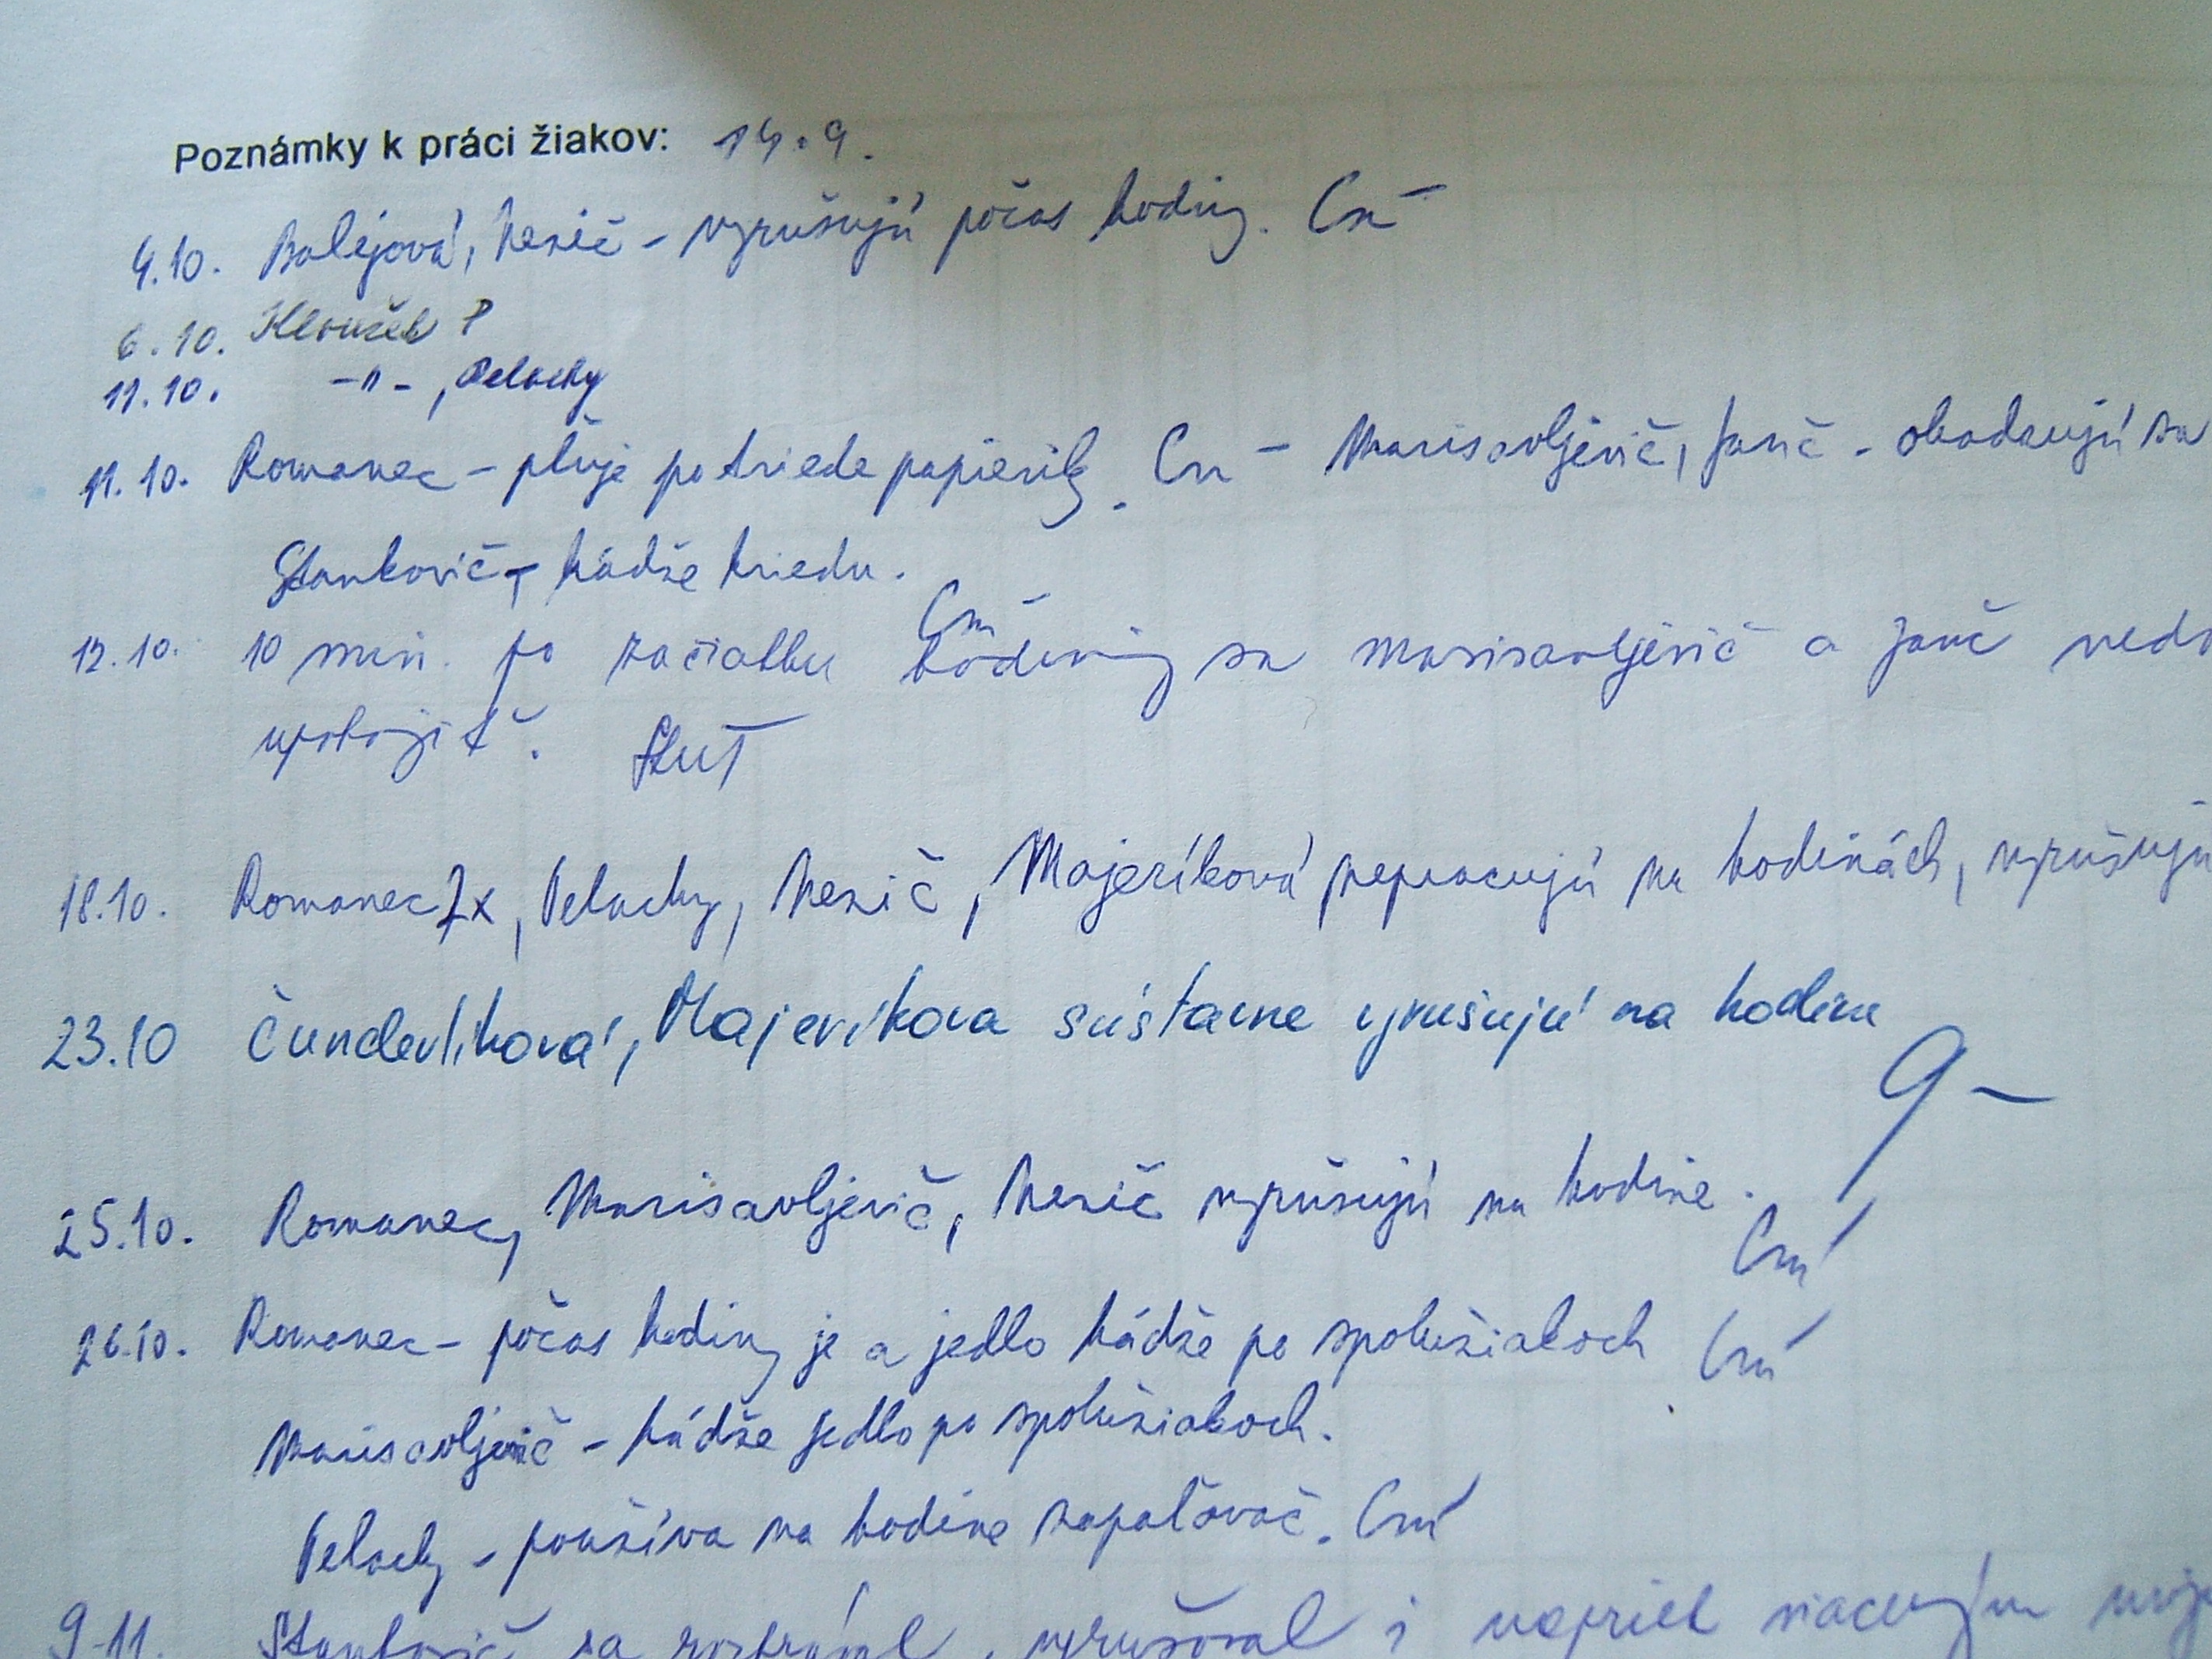 Poznámky k práci žiakov: 14.9.
4.10. Balejová, Nesič - vyrušujú počas hodiny.
6.10. Hloušek P
11.10. -"-, Pelachy
11.10. Romanec - pľuje po triede papieriky. Marisavljevič, Janč - ohadzujú sa
Stankovič - hádže kriedu.
12.10. 10 min. po začiatku hodiny sa Marisavljevič a Janč nedo
upokojiť.
18.10. Romanec 2x, Pelachy, Nesič, Majeríková nepracujú na hodinách, vyrušujú
23.10 Čunderlíková, Majeríkova sústavne vyrušujú na hodine
25.10. Romanec, Marisavljevič, Nesič vyrušujú na hodine.
26.10. Romanec - počas hodiny je a jedlo hádže po spolužiakoch
Marisavljevič - hádže jedlo po spolužiakoch.
Pelachy - používa na hodine zapaľovač.
9.11. Stankovič sa vyrušoval i napriek viacerým